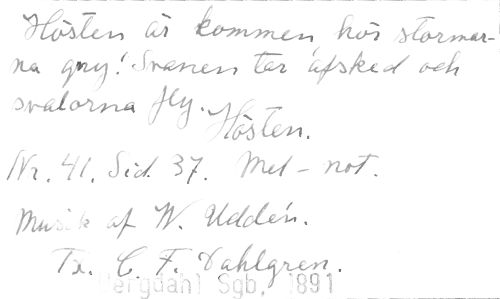 Hösten är kommen, hör stormar-
na gny! Svanen tar afsked och
svalorna fly.
Hösten.
Nr. 41. Sid. 37. Mel - not.
Musik af W. Uddén.
Tx. C. F. Dahlgren.
Bergdahl Sgb, 1891